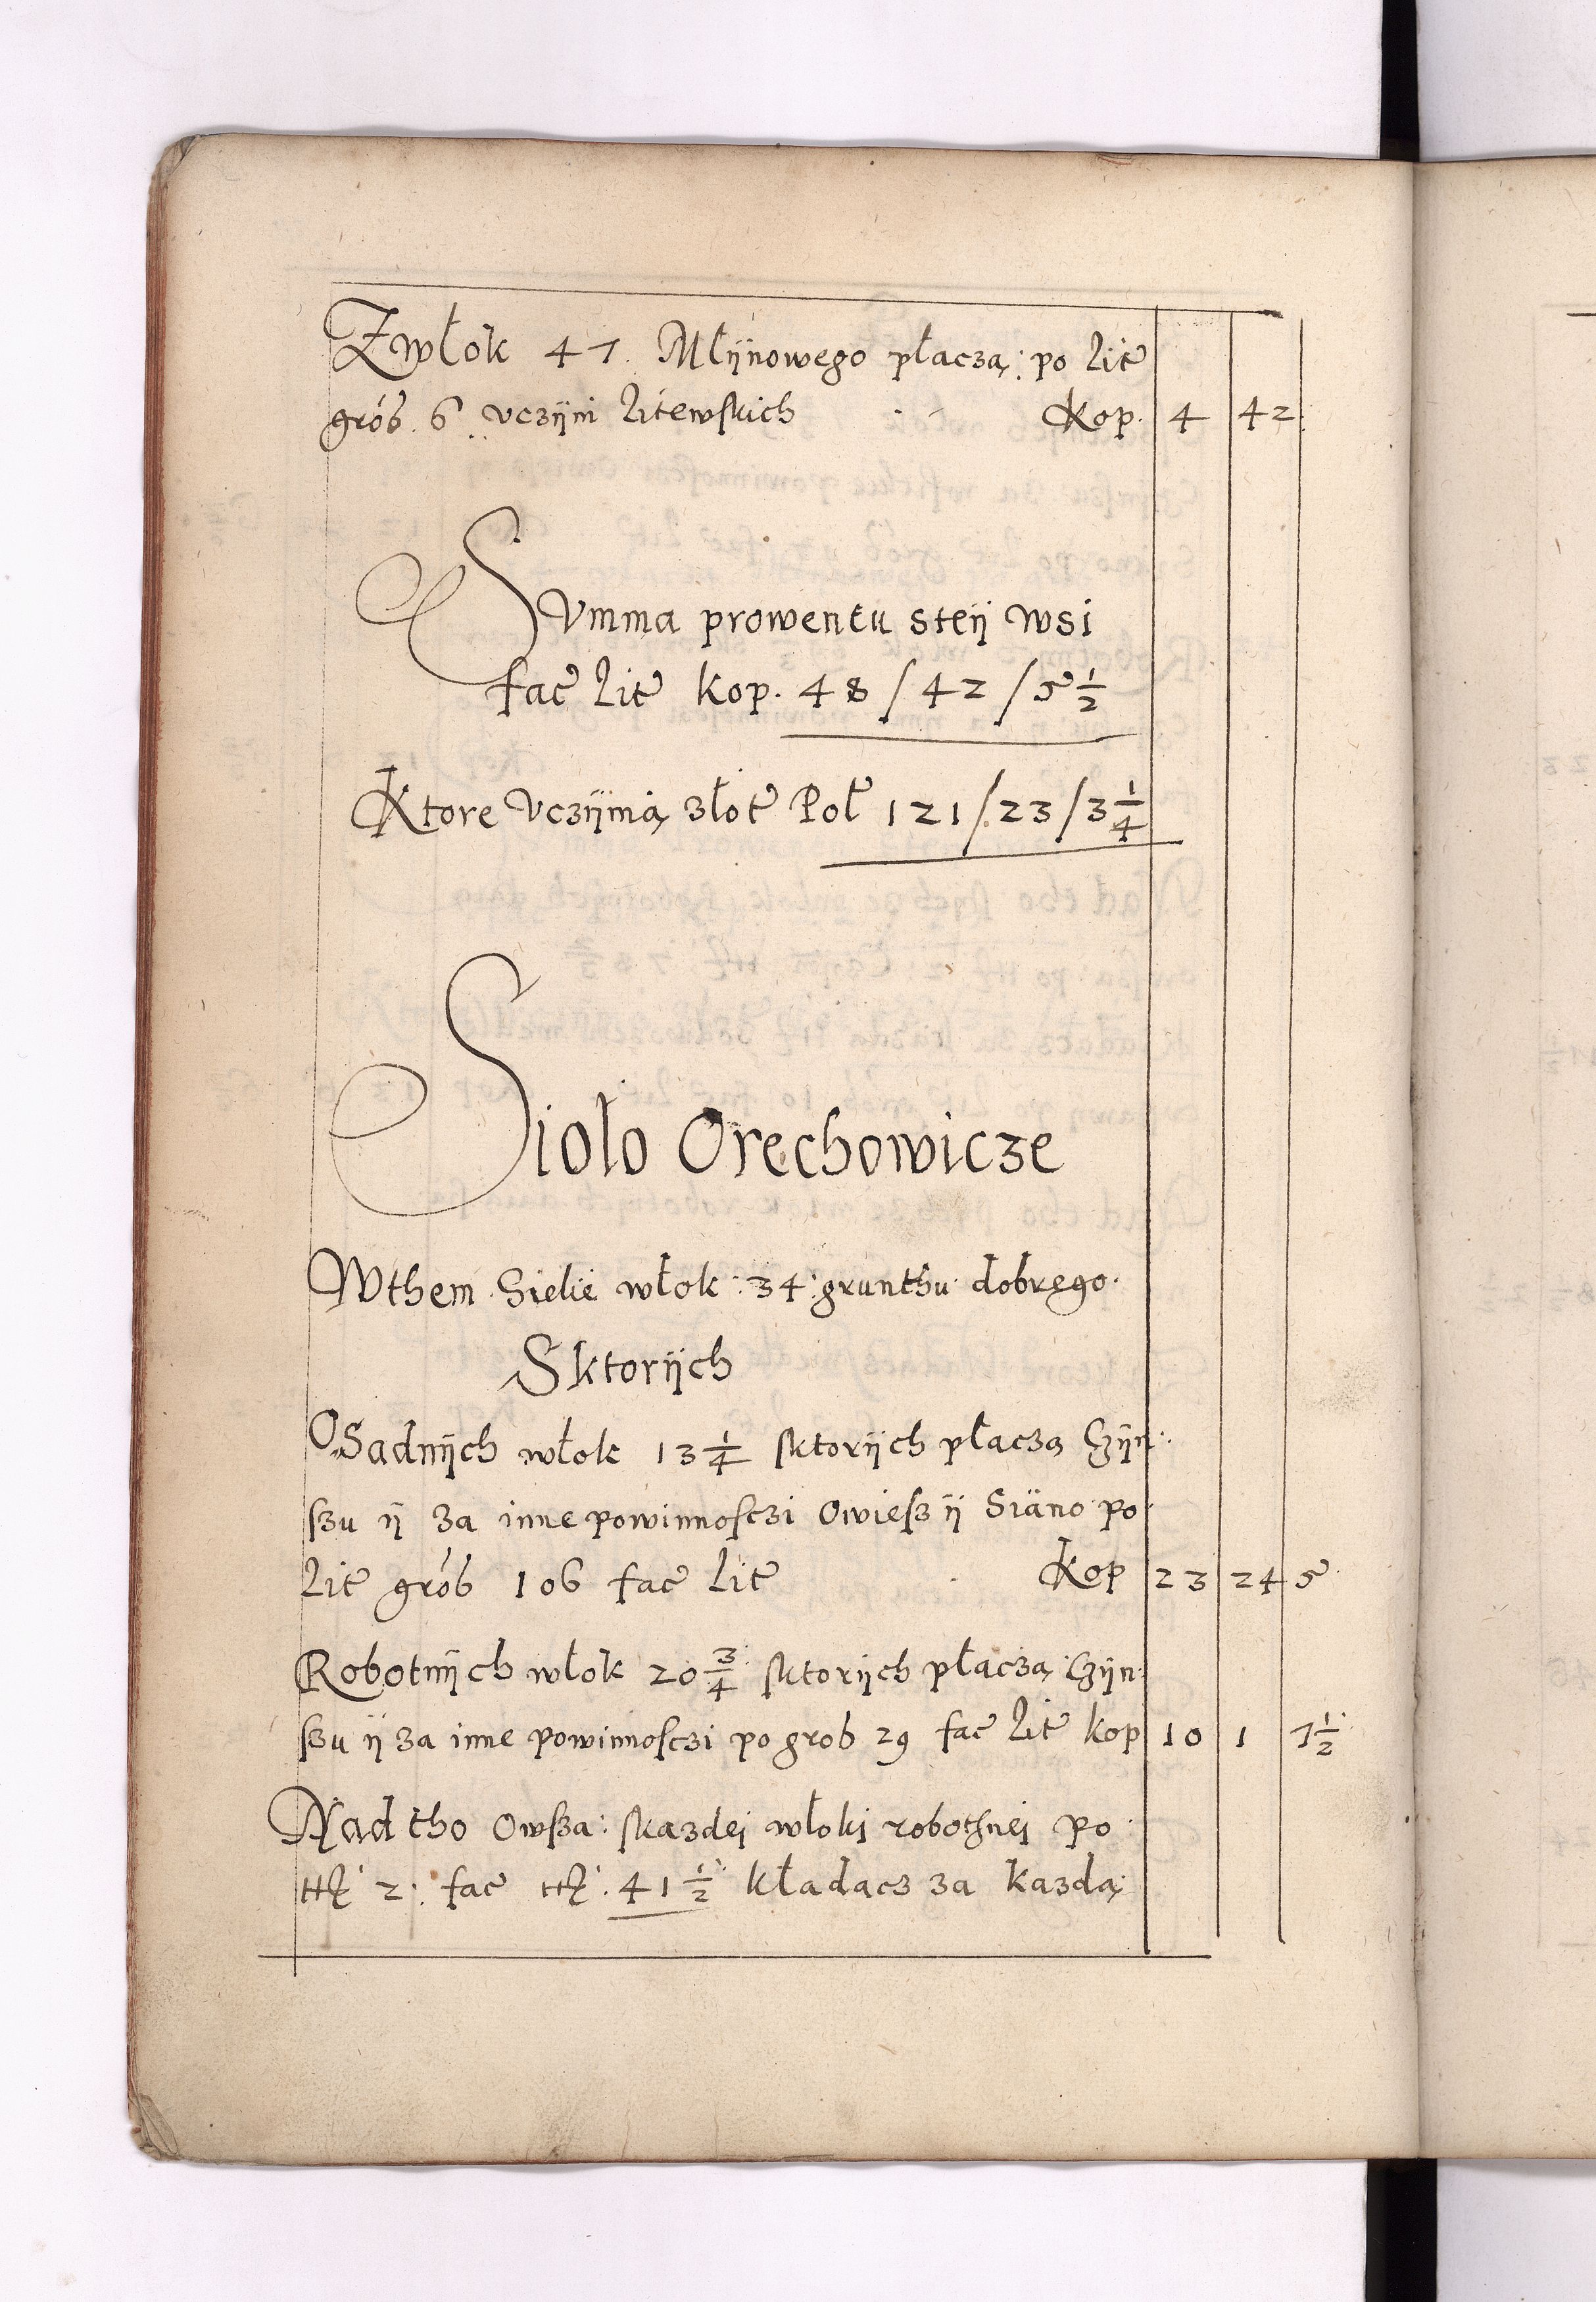 Zwłok 47. Młijnowego płaczą: po lit
grob. 6 vczijni litewskich Kop. 4 42
Svmma prowentu steij wsi
fac lit kop. 48 / 42 / 5 1/2
Ktore Vczijnią złot Pol 121 / 23 / 3 1/4
Sioło Orechowicze
Wthem Sielie włok : 34 : grunthu dobrego.
Sktorijch
OSadnijch włok 13 1/4 sktorijch płaczą Czijn
szu ij za inne powinnosczi Owiesz ij Siano po
lit grob 106 fac lit Kop 23 24 5
Robotnijch włok 20 3/4 sktorijch płaczą Czijn
szu ij za inne powinnosczi po grob 29 fac lit kop 10 1 7 1/2
Nad tho Owsza : skazdei włoki robothnei po
2 : fac 41 1/2 kładacz za kazdą